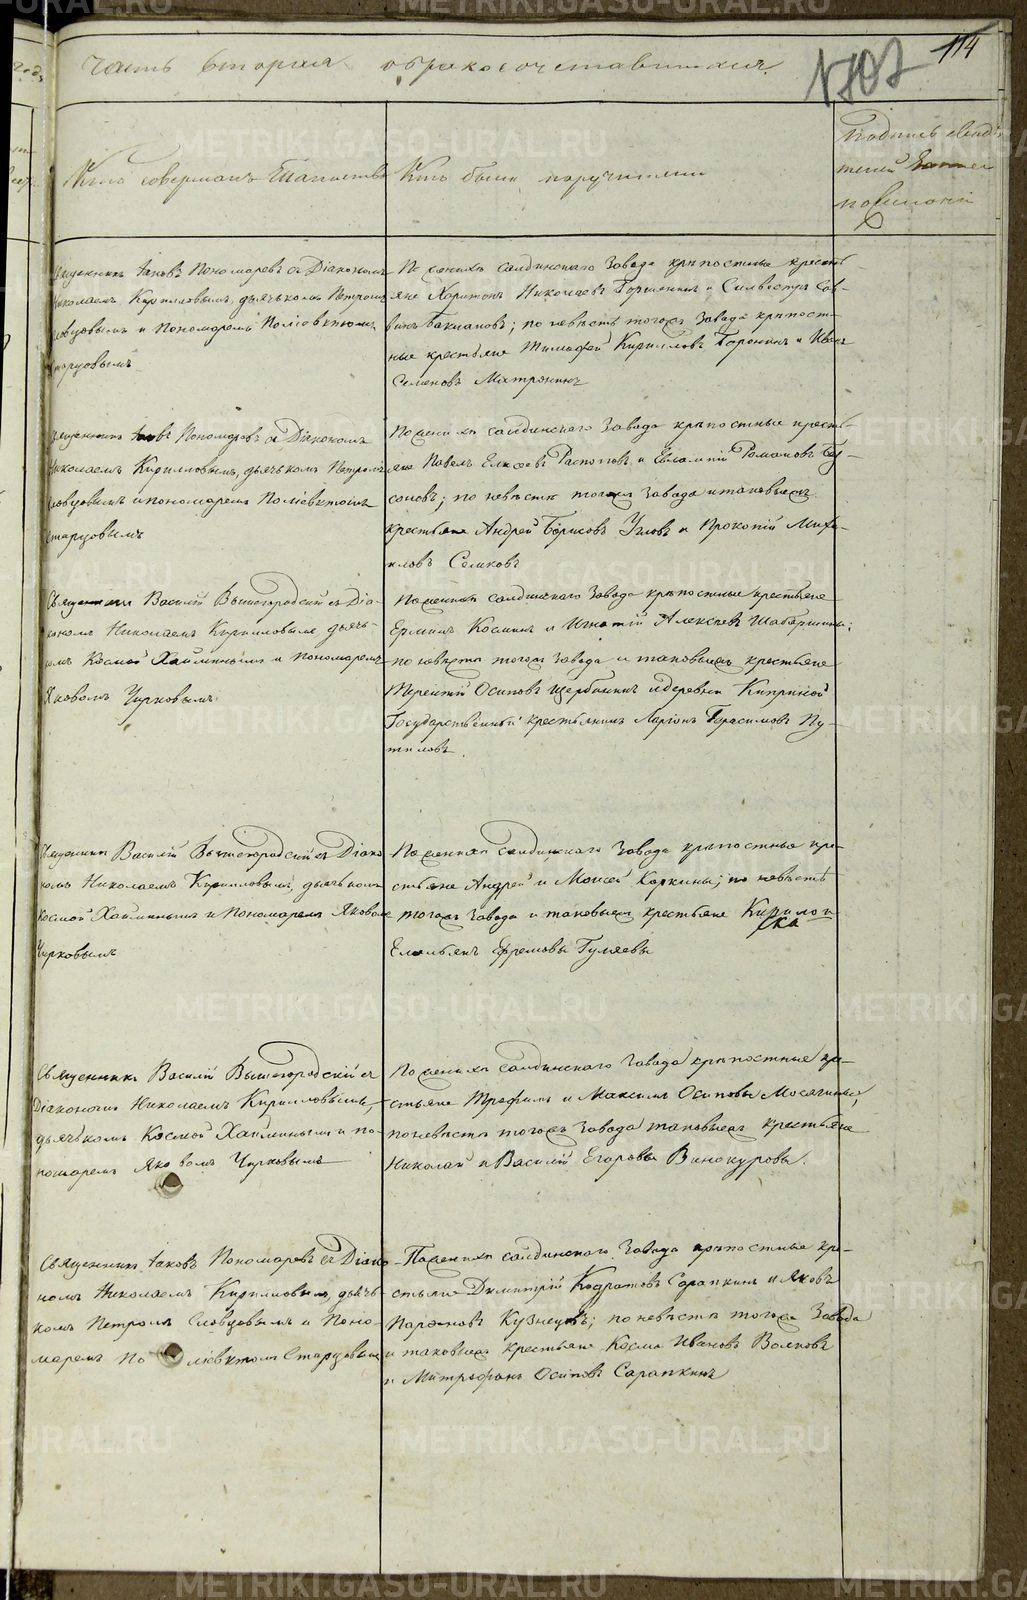 114
1707
Часть вторая о бракосочетавшихся
Кто совершалъ Таинство
Кто были поручители
Подпись свиде
телей
по желанію
Священникъ Іаковъ Пономаревъ съ Діакономъ
Николаемъ Кирилловымъ, дьячькомъ Петромъ
Словцовымъ и Пономаремъ Поліевктомъ
Старцовымъ
По женихѣ салдинскаго Завода крѣпостные кресть-
яне Харитонъ Николаевъ и Сильвестръ Сав-
винъ; по невѣстѣ тогожъ Завода крѣпост-
ные крестьяне Тимофей Кирилловъ и Иванъ
Семеновъ
Священникъ Іаковъ Пономаревъ съ Діакономъ
Николаемъ Кирилловымъ, дьячькомъ Петромъ
Словцовымъ и пономаремъ Поліевктомъ
Старцовымъ
По женихѣ салдинскаго Завода крѣпостные кресть-
яне Павелъ Елисеевъ Распоповъ и Евлампій Романовъ Бу-
соновъ; по невѣстѣ тогожъ Завода и таковыежъ
крестьяне Андрей Борисовъ Узловъ и Прокопій Миха-
иловъ Семковъ
Священникъ Василій Вышегородскій съ Діа-
кономъ Николаемъ Кирилловымъ, дьячь-
комъ Космой Хайминымъ и пономаремъ
Яковомъ Чирковымъ
По женихѣ салдинскаго Завода крѣпостные крестьяне
Ермилъ Косминъ и Игнатій Алексѣевъ Шабаршины;
по невѣстѣ тогожъ Завода и таковыежъ крестьяне
Терентій Осиповъ Щербининъ и деревни Киприной
Государственный крестьянинъ Ларіонъ Герасимовъ Пу-
тиловъ.
Священникъ Василій Вышегородскій съ Діако-
номъ Николаемъ Кирилловымъ, дьячькомъ
Космой Хайминымъ и Пономаремъ Яковомъ
Чирковымъ
По женихѣ салдинскаго Завода крѣпостные кре-
стьяне Андрей и Моисей Коркины; по невѣстѣ
тогожъ Завода и таковыежъ крестьяне Кирило и
Емельянъ Ефремовы Гуляевы
Священникъ Василій Вышегородскій съ
Діакономъ Николаемъ Кирилловымъ,
дьячькомъ Космой Хайминымъ и по-
номаремъ Яковомъ Чирковымъ
По женихѣ салдинскаго Завода крѣпостные кре-
стьяне Трефилъ и Максимъ Осиповы Мосягины;
по невѣстѣ тогожъ Завода таковыежъ крестьяне
Николай и Василій Егоровы Винокуровы.
Священникъ Іаковъ Пономаревъ съ Діако-
номъ Николаемъ Кирилловымъ, дьячь-
комъ Петромъ Словцовымъ и Поно-
маремъ Поліевктомъ Старцовымъ
По женихѣ салдинскаго Завода крѣпостные кре-
стьяне Димитрій Кодратовъ Сарапкинъ и Яковъ
Парфеновъ Кузнецовъ; по невѣстѣ тогожъ Завода
и таковыежъ крестьяне Косма Ивановъ Волковъ
и Митрофанъ Осиповъ Сарапкинъ
METRIKI.GASO-URAL.RU